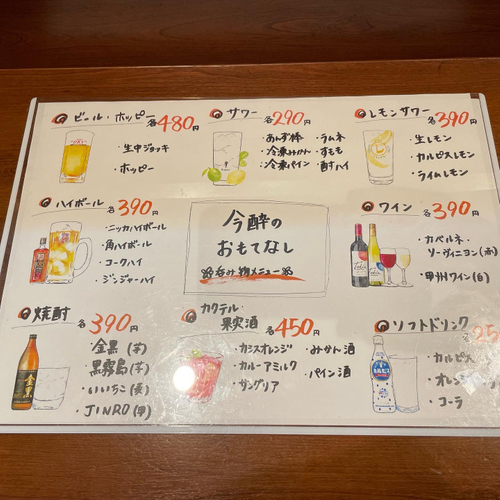 ビール・ホッピー 各480円
・生中ジョッキ
・ホッピー
サワー 各290円
・あんず棒 ・ラムネ
・冷凍みかん ・すもも
・冷凍パイン ・酎ハイ
レモンサワー 各390円
・生レモン
・カルピスレモン
・ライムレモン
ハイボール 各390円
・ニッカハイボール
・角ハイボール
・コークハイ
・ジンジャーハイ
今酔の
おもてなし
呑み物メニュー
ワイン 各390円
・カベルネ・
ソーヴィニヨン(赤)
・甲州ワイン(白)
焼酎 各390円
・金黒(芋)
・黒霧島(芋)
・いいちこ(麦)
・JINRO(甲)
カクテル・
果実酒 各450円
・カシスオレンジ ・みかん酒
・カルーアミルク ・パイン酒
・サングリア
ソフトドリンク
各25
・カルピス
・オレン
・コーラ
金黒